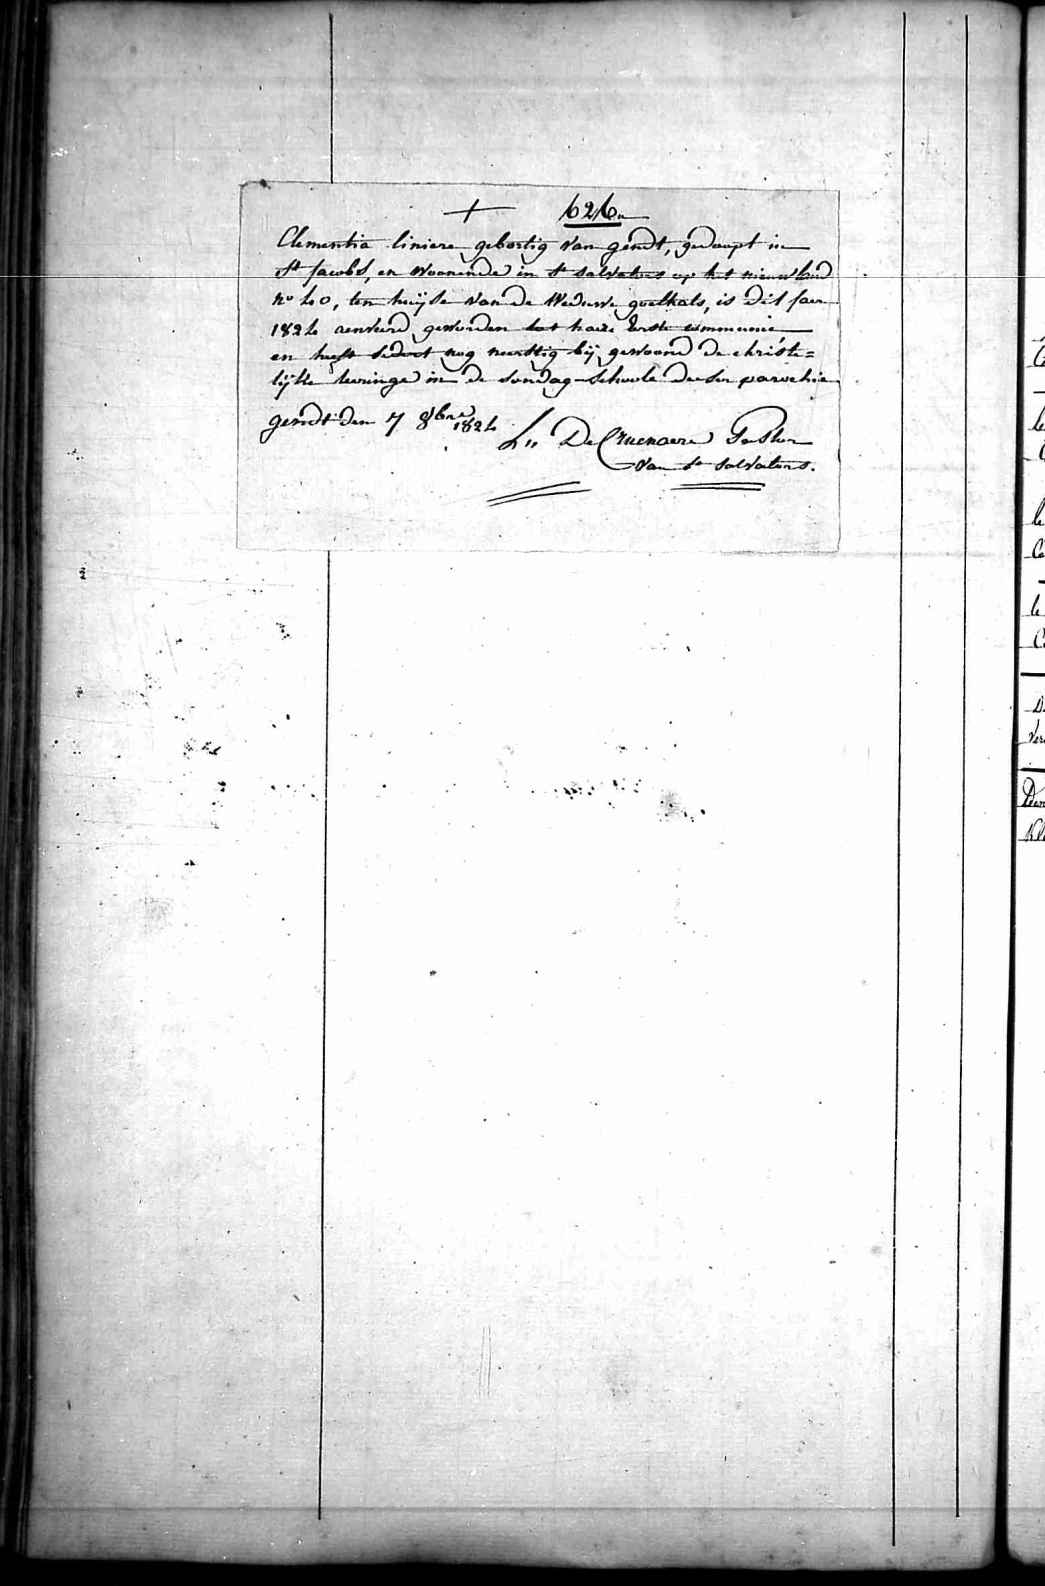 + 626
Clementia liniere gebortig van gendt, gedoopt in
St jacobs, en woonende in St salvators op het nieuwland
no 40, ten huijse van de Weduwe goethals, is dit jaer
1824 aenveird geworden tot haere Eerste communie
en heeft sedert nog neerstig bij gewoond de christe=
lijke leeringe in de sondag-schoole deeser parochie
gendt den 7 8bre 1824
L" De Cruenaere Pastor
van St salvators.
Ver